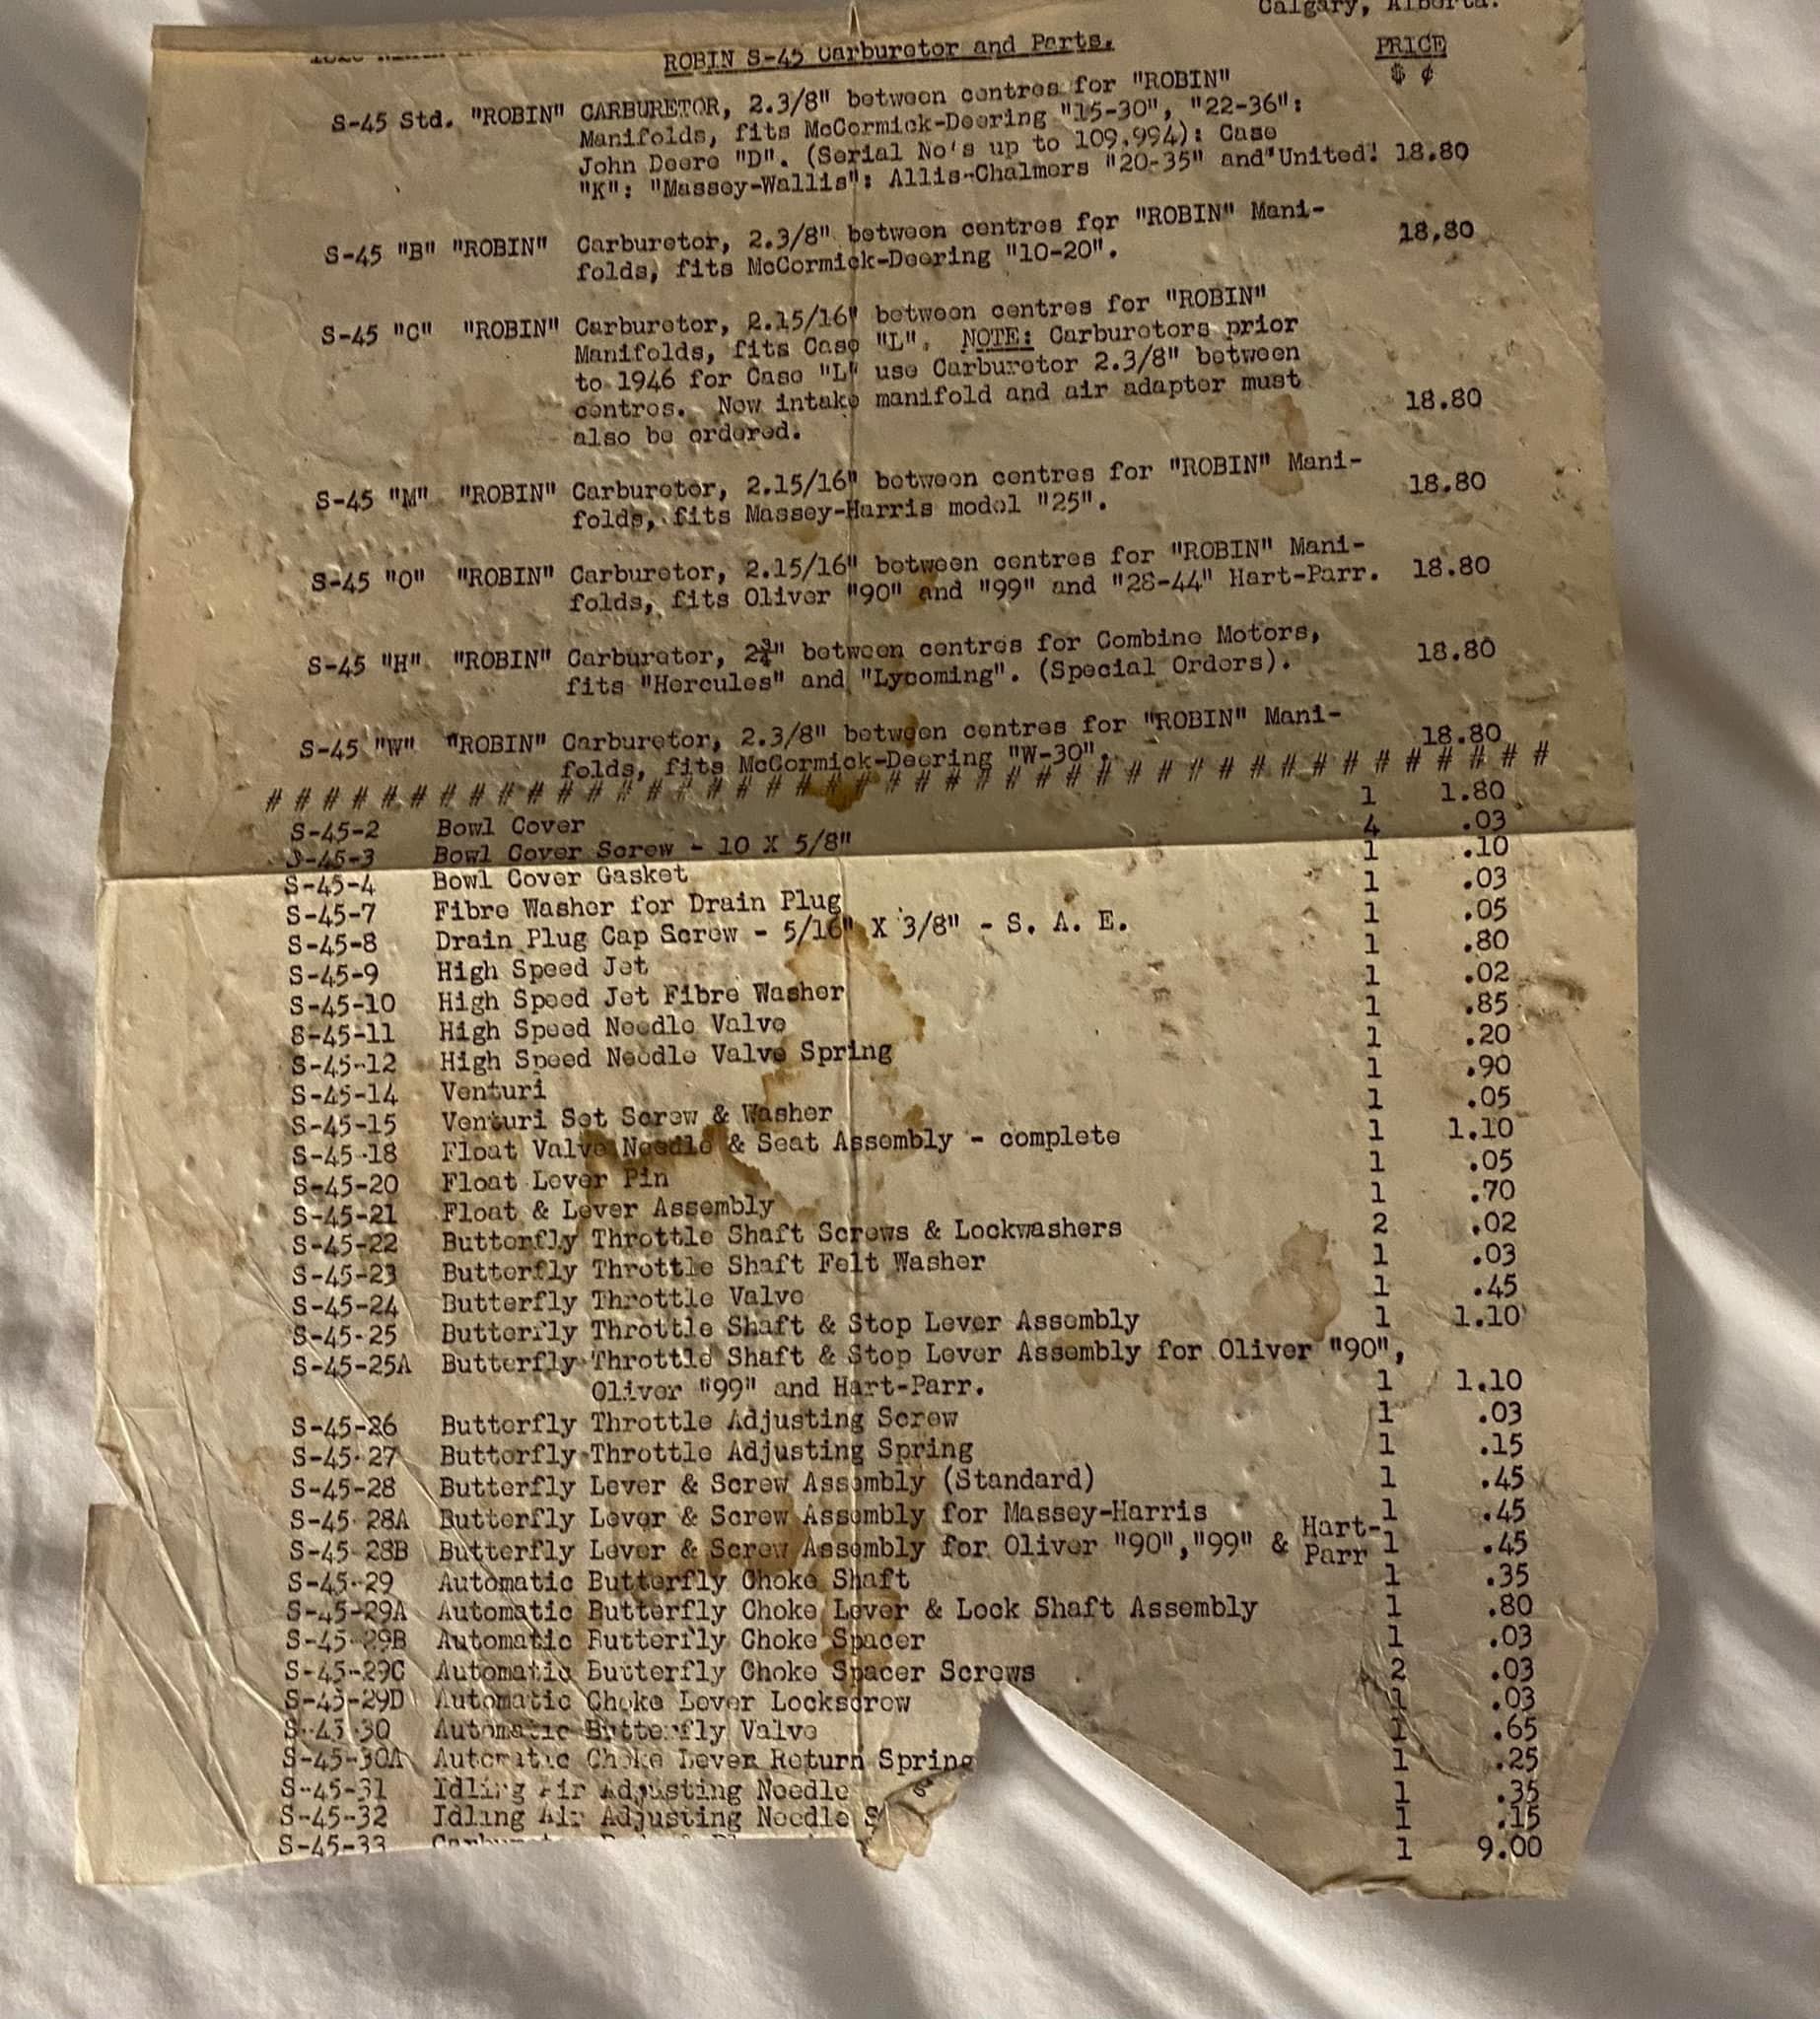 Calgary, Alberta.
ROBIN S-45 Carburetor and Parts. PRICE
$ ¢
S-45 Std. "ROBIN" CARBURETOR, 2.3/8" between centres for "ROBIN"
Manifolds, fits McCormick-Deering "15-30", "22-36":
John Deere "D". (Serial No's up to 109.994): Case
"K": "Massey-Wallis": Allis-Chalmers "20-35" and "United! 18.80
S-45 "B" "ROBIN" Carburetor, 2.3/8" between centres for "ROBIN" Mani- 18.80
folds, fits McCormick-Deering "10-20".
S-45 "C" "ROBIN" Carburetor, 2.15/16" between centres for "ROBIN"
Manifolds, fits Case "L". NOTE: Carburetors prior
to 1946 for Case "L" use Carburetor 2.3/8" between
centres. Now intake manifold and air adapter must 18.80
also be ordered.
S-45 "M" "ROBIN" Carburetor, 2.15/16" between centres for "ROBIN" Mani- 18.80
folds, fits Massey-Harris model "25".
S-45 "O" "ROBIN" Carburetor, 2.15/16" between centres for "ROBIN" Mani- 18.80
folds, fits Oliver "90" and "99" and "28-44" Hart-Parr.
S-45 "H" "ROBIN" Carburetor, 2¾" between centres for Combine Motors, 18.80
fits "Hercules" and "Lycoming". (Special Orders).
S-45 "W" "ROBIN" Carburetor, 2.3/8" between centres for "ROBIN" Mani- 18.80
folds, fits McCormick-Deering "W-30".
# # # # # # # # # # # # # # # # # # # # # # # # # # # # # # # # # # # # # # # # # # #
S-45-2 Bowl Cover 1 1.80
S-45-3 Bowl Cover Screw - 10 X 5/8" 4 .03
S-45-4 Bowl Cover Gasket 1 .10
S-45-7 Fibre Washer for Drain Plug 1 .03
S-45-8 Drain Plug Cap Screw - 5/16" X 3/8" - S. A. E. 1 .05
S-45-9 High Speed Jet 1 .80
S-45-10 High Speed Jet Fibre Washer 1 .02
S-45-11 High Speed Needle Valve 1 .85
S-45-12 High Speed Needle Valve Spring 1 .20
S-45-14 Venturi 1 .90
S-45-15 Venturi Set Screw & Washer 1 .05
S-45-18 Float Valve Needle & Seat Assembly - complete 1 1.10
S-45-20 Float Lever Pin 1 .05
S-45-21 Float & Lever Assembly 1 .70
S-45-22 Butterfly Throttle Shaft Screws & Lockwashers 2 .02
S-45-23 Butterfly Throttle Shaft Felt Washer 1 .03
S-45-24 Butterfly Throttle Valve 1 .45
S-45-25 Butterfly Throttle Shaft & Stop Lever Assembly 1 1.10
S-45-25A Butterfly Throttle Shaft & Stop Lever Assembly for Oliver "90",
Oliver "99" and Hart-Parr. 1 1.10
S-45-26 Butterfly Throttle Adjusting Screw 1 .03
S-45-27 Butterfly Throttle Adjusting Spring 1 .15
S-45-28 Butterfly Lever & Screw Assembly (Standard) 1 .45
S-45-28A Butterfly Lever & Screw Assembly for Massey-Harris 1 .45
S-45-28B Butterfly Lever & Screw Assembly for Oliver "90","99" & Hart-Parr 1 .45
S-45-29 Automatic Butterfly Choke Shaft 1 .35
S-45-29A Automatic Butterfly Choke Lever & Lock Shaft Assembly 1 .80
S-45-29B Automatic Butterfly Choke Spacer 1 .03
S-45-29C Automatic Butterfly Choke Spacer Screws 2 .03
S-45-29D Automatic Choke Lever Lockscrew 1 .03
S-45-30 Automatic Butterfly Valve 1 .65
S-45-30A Automatic Choke Lever Return Spring 1 .25
S-45-31 Idling Air Adjusting Needle 1 .35
S-45-32 Idling Air Adjusting Needle S 1 .15
S-45-33 1 9.00